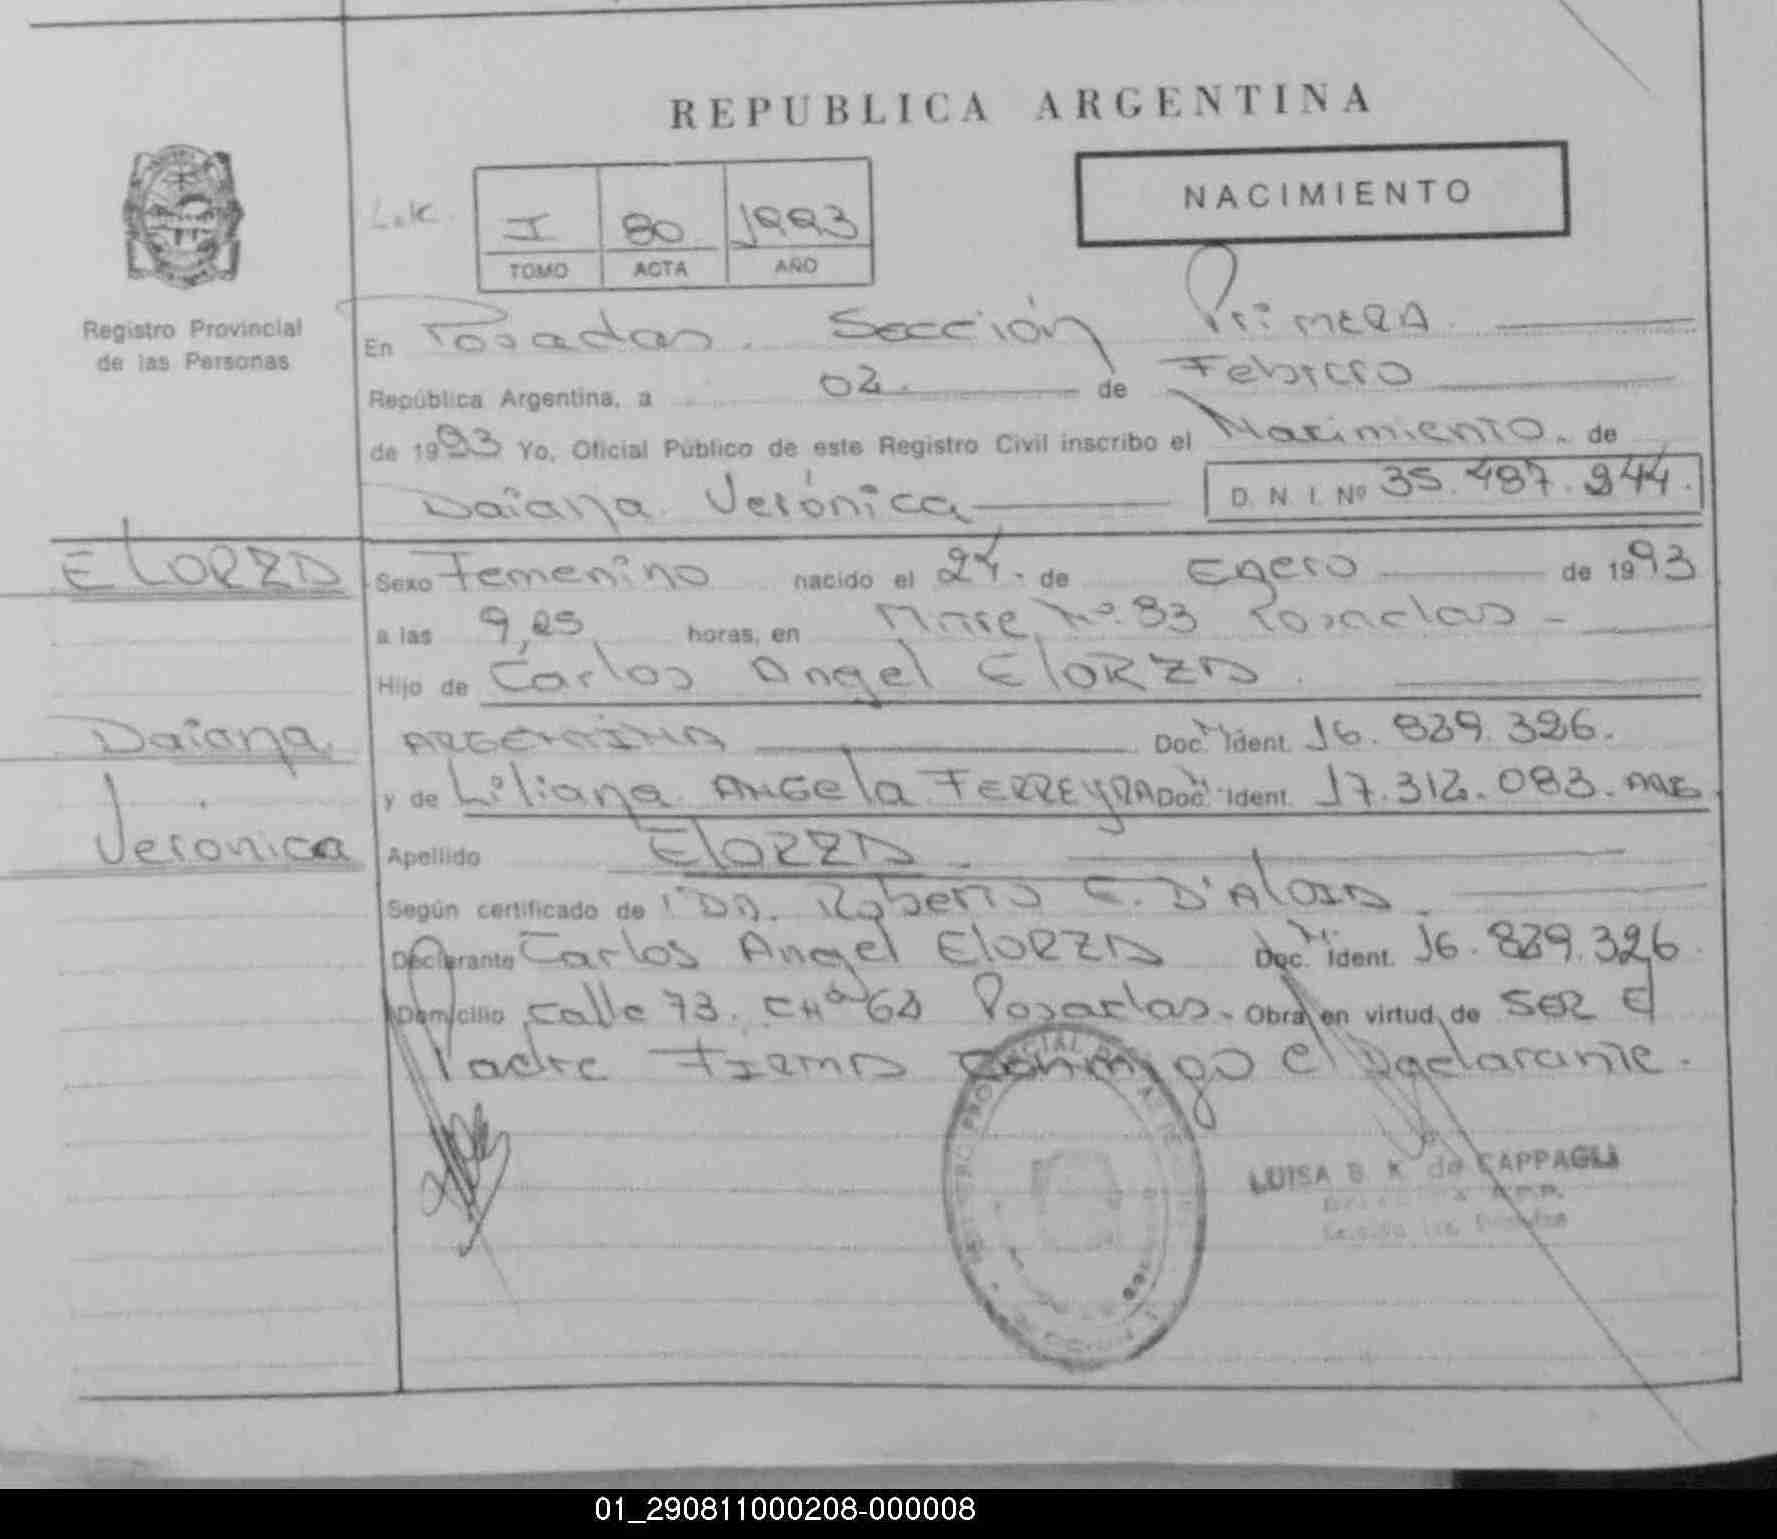 REPUBLICA ARGENTINA
NACIMIENTO
I 80 1993
TOMO ACTA AÑO
Registro Provincial
de las Personas
En Posadas. Sección Primera
República Argentina, a 02. de Febrero
de 1993 Yo, Oficial Público de este Registro Civil inscribo el Nacimiento. de
Daiana Verónica D. N. I. Nº 35.487.944.
ELORZA
Sexo Femenino nacido el 24. de Enero de 1993
a las 9,25 horas, en Mitre Nº. 93 Posadas -
Hijo de Carlos Angel ELORZA.
Daiana
ARGENTINA Doc. Ident. 16.829.326.
y de Liliana Angela FERREYRA Doc. Ident. 17.312.083. ARG
Verónica
Apellido ELORZA.
Según certificado de DR. Roberto E. D'Aloia
Declarante Carlos Angel ELORZA Doc. Ident. 16.829.326
Domicilio Calle 73. CHª 68 Posadas. Obra en virtud de SER El
Padre FIRMA Conmigo el Declarante.
LUISA B. K. de CAPPAGLI
01_290811000208-000008